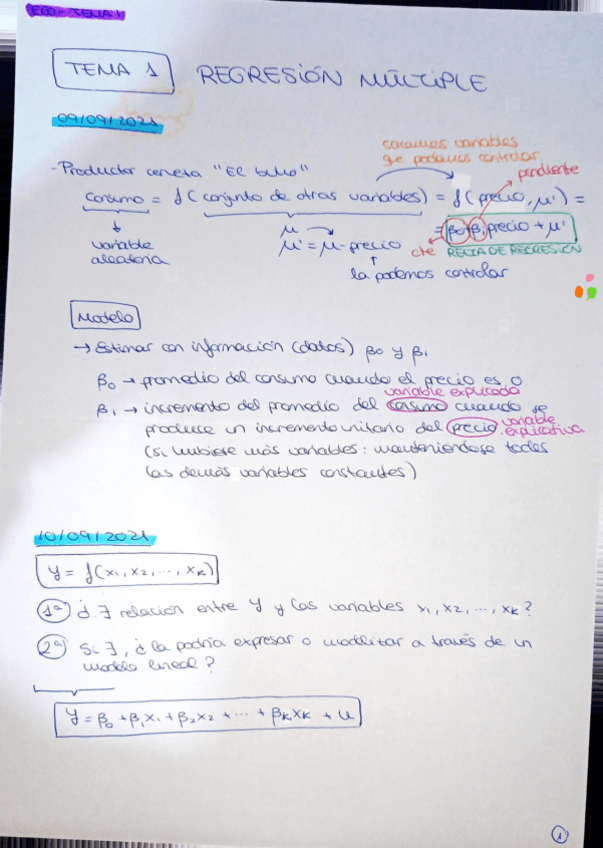 ECO - TEMA 1
TEMA 1 REGRESIÓN MÚLTIPLE
09/09/2021
sacamos variables
que podamos controlar
pendiente
- Productor cerveza "El búho"
Consumo = f(conjunto de otras variables) = f(precio, μ') =
variable
aleatoria
μ
μ' = μ - precio
la podemos controlar
= β₀ + β₁ precio + μ'
cte RECTA DE REGRESIÓN
Modelo
→ Estimar con información (datos) β₀ y β₁
β₀ → promedio del consumo cuando el precio es 0
variable explicada
β₁ → incremento del promedio del consumo cuando se
produce un incremento unitario del precio variable explicativa
(si hubiese más variables: manteniéndose todas
las demás variables constantes)
10/09/2021
y = f(x₁, x₂, ..., xₖ)
1º ¿∃ relación entre y y las variables x₁, x₂, ..., xₖ?
2º Si ∃, ¿la podría expresar o modelizar a través de un
modelo lineal?
y = β₀ + β₁x₁ + β₂x₂ + ... + βₖxₖ + u
1